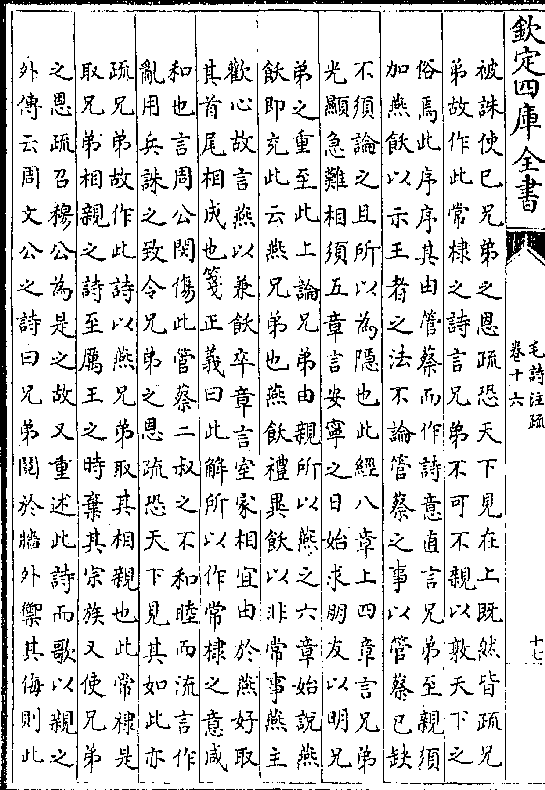 欽定四庫全書
毛詩注疏
卷十六
十七
被誅使已兄弟之恩疏恐天下見在上既然皆疏兄
弟故作此常棣之詩言兄弟不可不親以敦天下之
俗焉此序序其由管蔡而作詩意直言兄弟至親須
加燕飫以示王者之法不論管蔡之事以管蔡已缺
不須論之且所以為隱也此經八章上四章言兄弟
光顯急難相須五章言安寧之日始求朋友以明兄
弟之重至此上論兄弟由親所以燕之六章始說燕
飫即充此云燕兄弟也燕飫禮異飫以非常事燕主
歡心故言燕以兼飫卒章言室家相宜由於燕好取
其首尾相成也箋正義曰此解所以作常棣之意咸
和也言周公閔傷此管蔡二叔之不和睦而流言作
亂用兵誅之致令兄弟之恩疏恐天下見其如此亦
疏兄弟故作此詩以燕兄弟取其相親也此常棣是
取兄弟相親之詩至厲王之時棄其宗族又使兄弟
之恩疏召穆公為是之故又重述此詩而歌以親之
外傳云周文公之詩曰兄弟鬩於牆外禦其侮則此